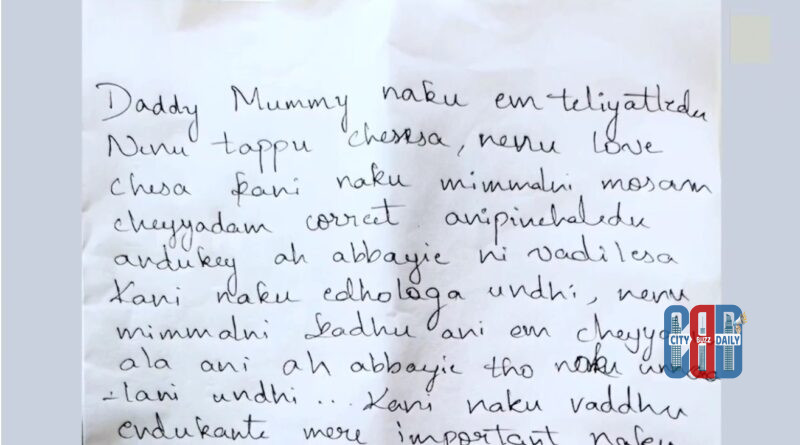 Daddy Mummy naku em teliyatledu
Nenu tappu chesesa, nenu love
chesa kani naku mimmalni mosam
cheyyadam correct anipinchaledu
andukey ah abbayie ni vadilesa
Kani naku edhologa undhi, nenu
mimmalni kadhu ani em
CITY BUZZ DAILY
ala ani ah abbayie tho naku
undhi... Kani naku vaddhu
endukante mere important naku